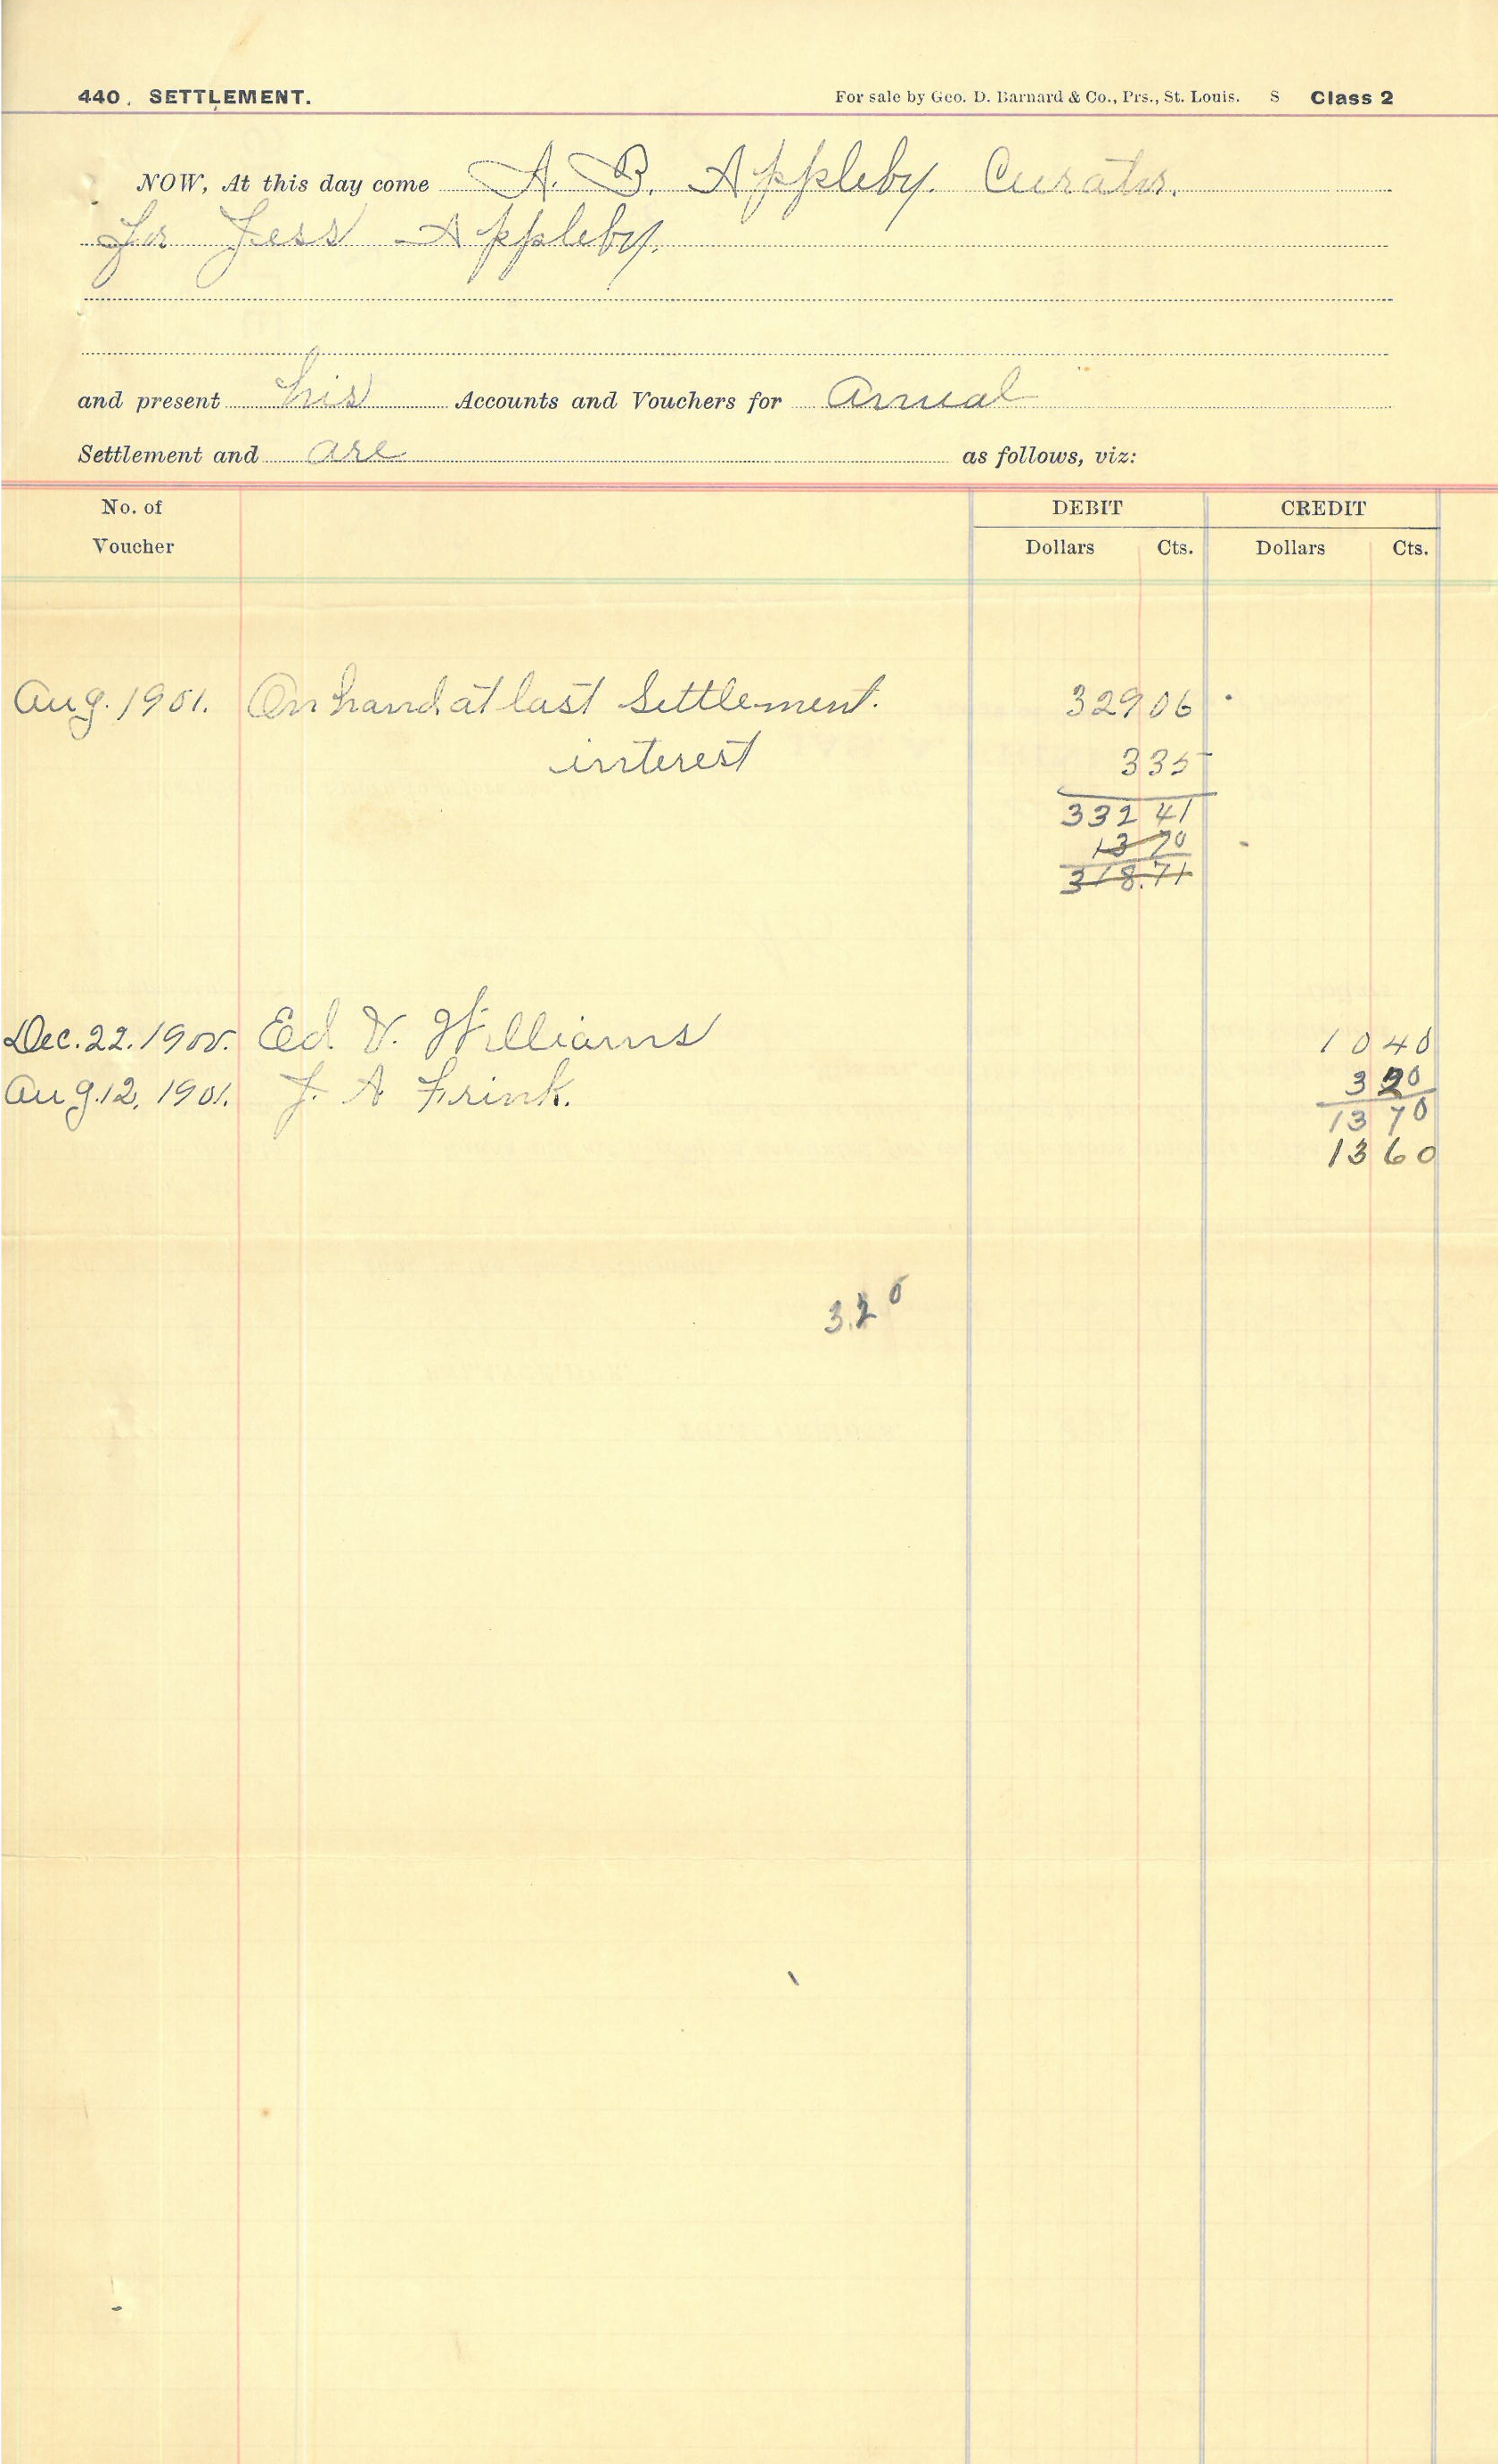 440. SETTLEMENT. For sale by Geo. D. Barnard & Co., Prs., St. Louis. S Class 2
NOW, At this day come A. B. Appleby. Curator.
For Jess Appleby.
and present his Accounts and Vouchers for Annual
Settlement and are as follows, viz:
No. of Voucher DEBIT CREDIT
Dollars Cts. Dollars Cts.
Aug. 1901. On hand at last Settlement. 329 06
interest 3 35
332 41
13 70
318.71
Dec. 22. 1900. Ed. V. Williams 10 40
Aug. 12, 1901. J. A Frink. 3 20
13 70
13 60
3.20